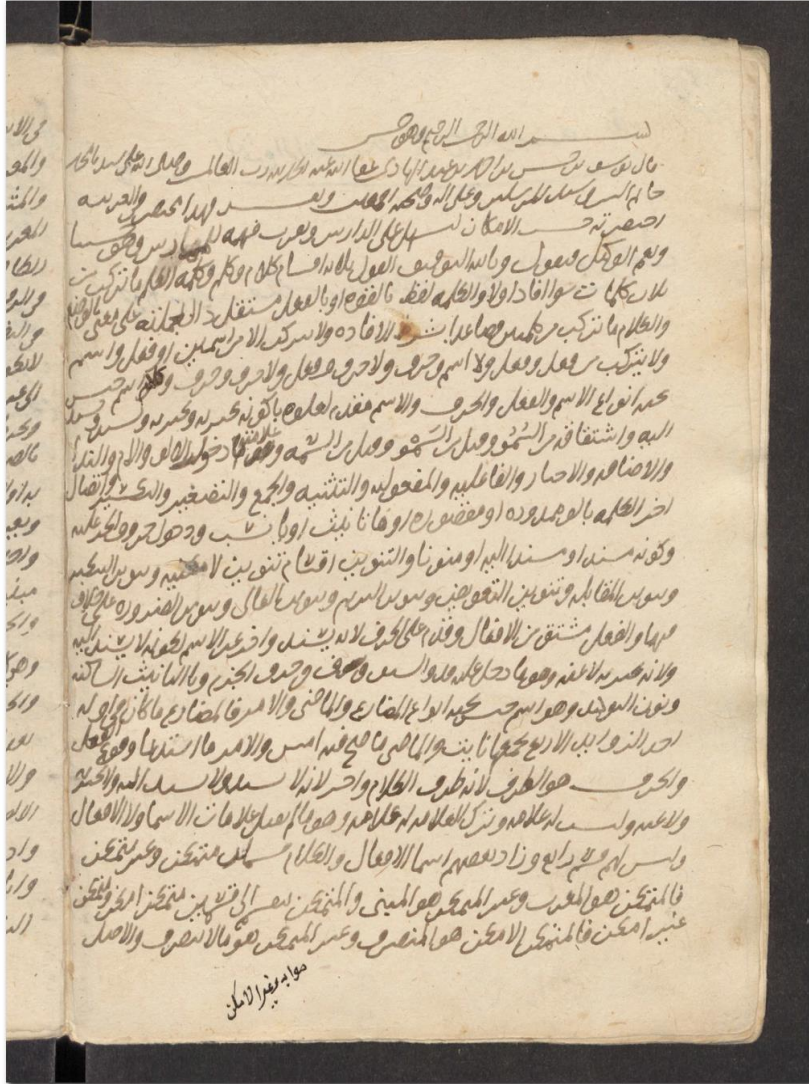 بسم الله الرحمن الرحيم وهو حسبي
قال يوسف بن حسن بن احمد بن عبد الهادي عفا الله عنه الحمد لله رب العالمين وصلى الله على سيدنا محمد
خاتم النبيين وسيد المرسلين وعلى اله وصحبه اجمعين وبعد فهذا مختصر في العربيه
اختصرته حسب الامكان ليسهل على الدارس ويقرب فهمه وهو حسبنا
ونعم الوكيل فنقول وبالله التوفيق القول ثلاثه اقسام كلام وكلم وكلمه الكلم ما تركب من
ثلاث كلمات سوا افاد او لا والكلمه لفظ بالقوه او بالفعل مستقل دال بجملته على معنى بالوضع
والكلام ما تركب من كلمتين فصاعدا بشرط الافاده ولا يتركب الا من اسمين او فعل واسم
ولا يتركب من فعل وفعل ولا اسم وحرف ولا حرف وفعل ولا حرف وحرف اسم جنس
تحته انواع الاسم والفعل والحرف والاسم مقدم لعلوه بالكونه يخبر به ويخبر عنه ويسند ويسند
اليه واشتقاقه من السُّمُوّ وقيل من السمه وعلامته دخول الالف واللام والندا
والاضافه والاخبار والفاعليه والمفعوليه والتثنيه والجمع والتصغير والتكسير واتصال
اخر الكلمه بالف ممدوده او مقصوره او ها تانيث او يا نسب ودخول حروف الجر عليه
وكونه مسندا او مسندا اليه او منونا والتنوين اقسام تنوين وتنوين التنكير
وتنوين المقابله وتنوين التعويض وتنوين الترنم وتنوين الغالي وتنوين الضروره على خلاف
فيها والفعل مشتق من الافعال وقدم على الحرف لانه يسند واخر عن الاسم لكونه لا يسند اليه
ولانه يخبر به لا عنه وهو ما دخل عليه قد والسين وسوف وحروف الجزم وتا التانيث الساكنه
ونون التوكيد وهو اسم جنس تحته انواع المضارع والماضي والامر فالمضارع ما كان في اوله
احد الزوايد الاربع يجمعها نايت والماضي ما صح فيه امس والامر ما استدعا وقوع الفعل
والحرف هو الطرف لانه طرف الكلام واخر لانه لا يسند ولا يسند اليه ولا يخبر به
ولا عنه وليست له علامه وترك العلامه له علامه وهو ما لم يقبل علامات الاسما ولا الافعال
وليس لهم قسم رابع وزاد بعضهم اسما الافعال والكلام متمكن وغير متمكن
فالمتمكن هو المعرب وغير المتمكن هو المبني والمتمكن ينقسم الى قسمين متمكن امكن ومتمكن
غير امكن فالمتمكن الامكن هو المنصرف وغير المتمكن هو ما لا ينصرف والاصل
صوابه وغير الامكن